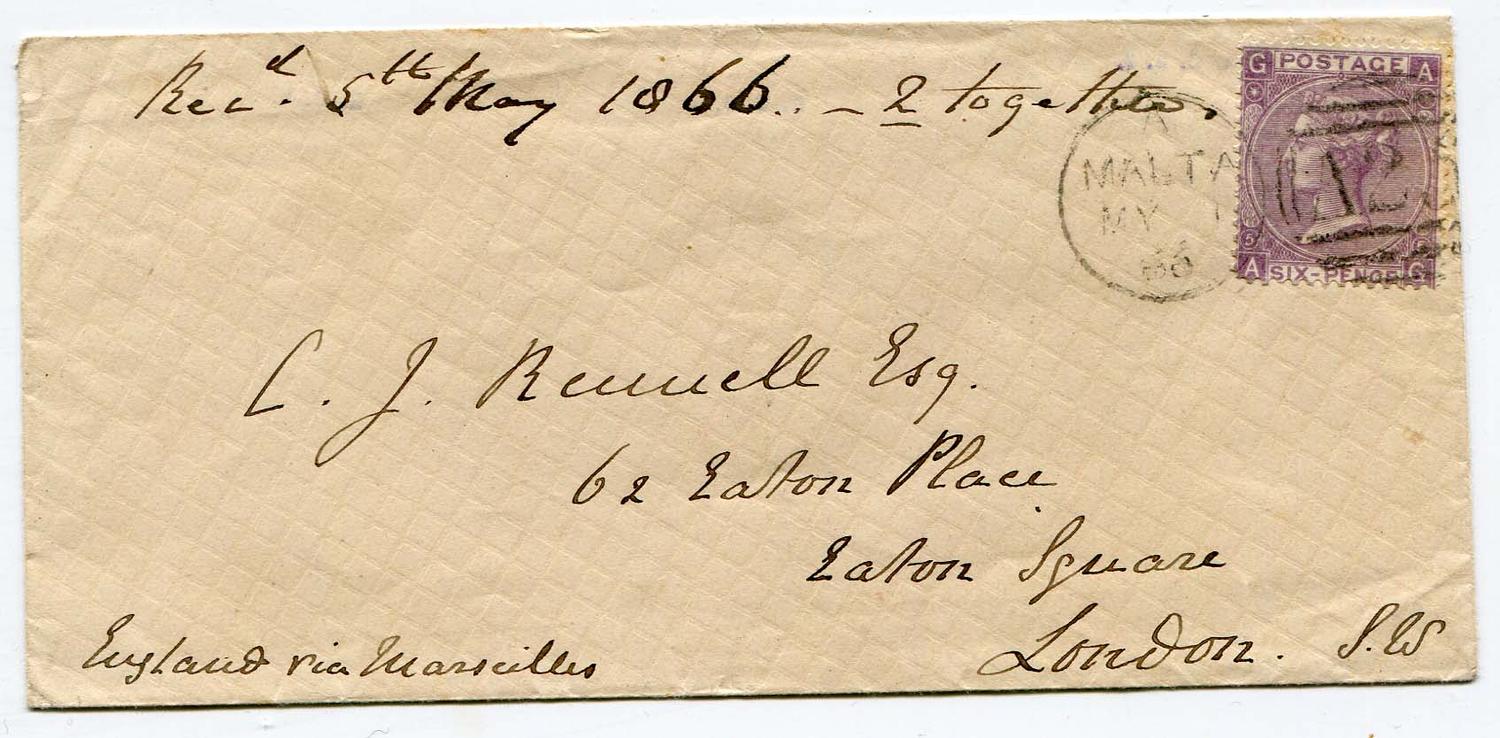 Recd. 5th May 1866. - 2 together.
G POSTAGE A
A
MALTA
MY 1
66
5
A SIX-PENCE G
C. J. Rennell Esq.
62 Eaton Place
Eaton Square
London. S.W
England via Marseilles